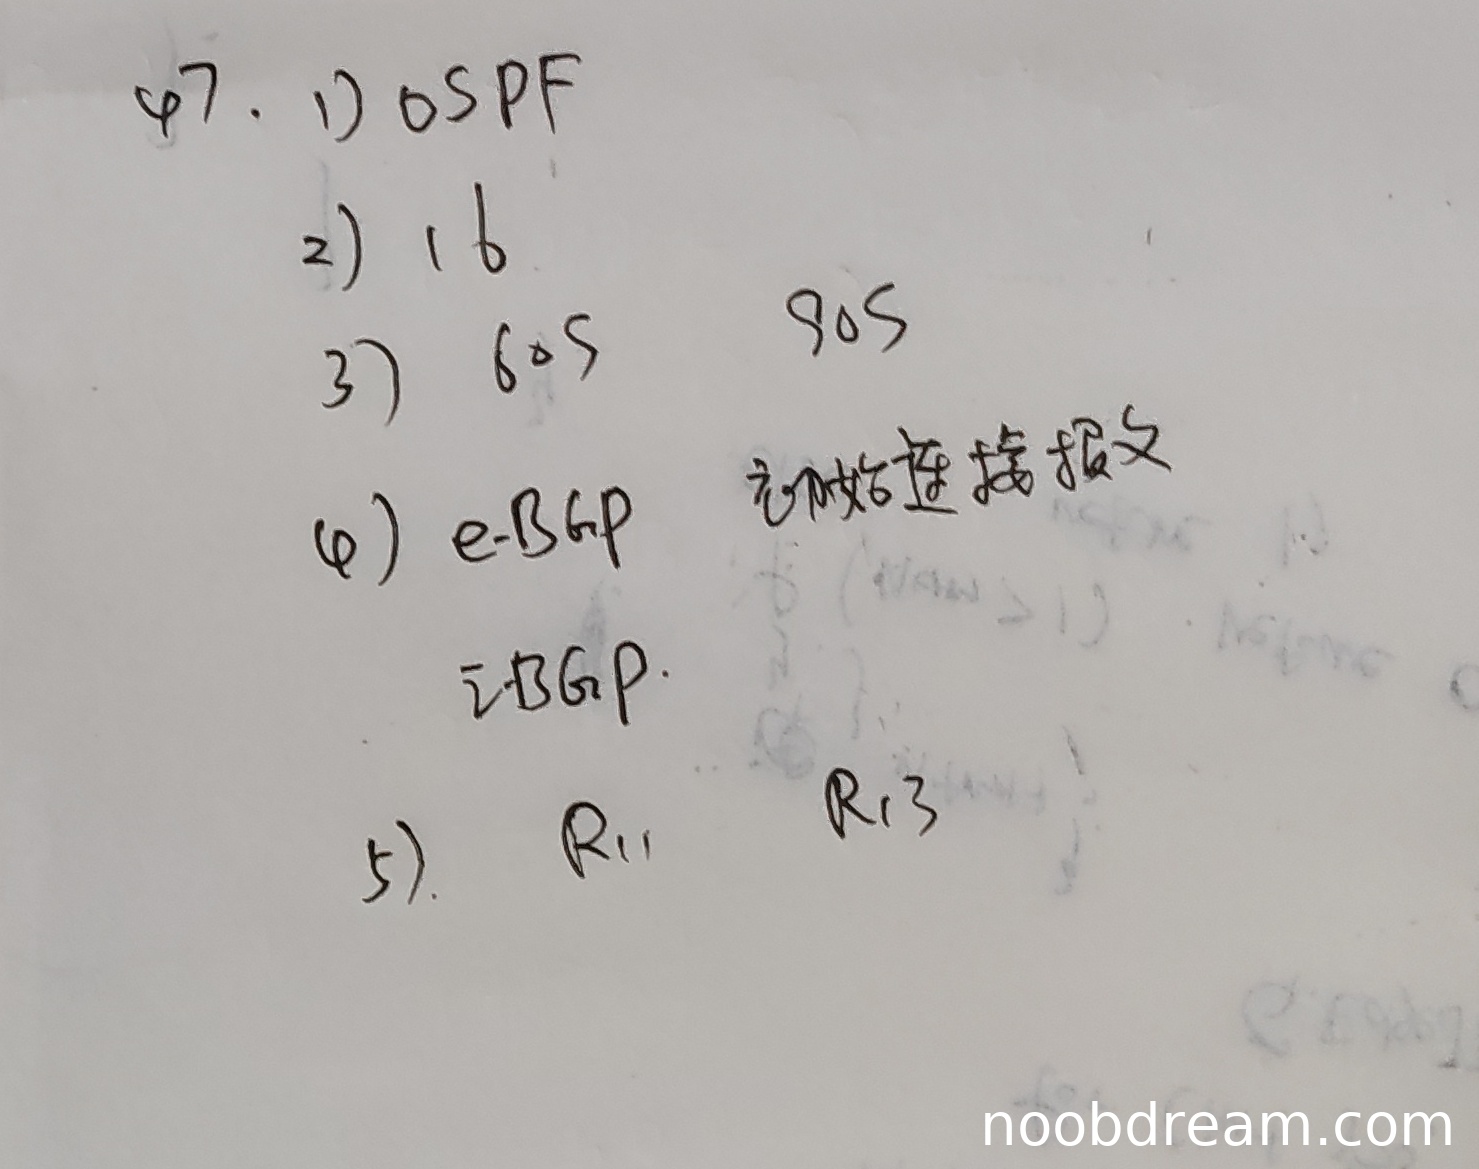 47. 1) OSPF
2) 16
3) 60S 90S
4) e-BGP 初始连接报文
i-BGP.
5). R11 R13
noobdream.com